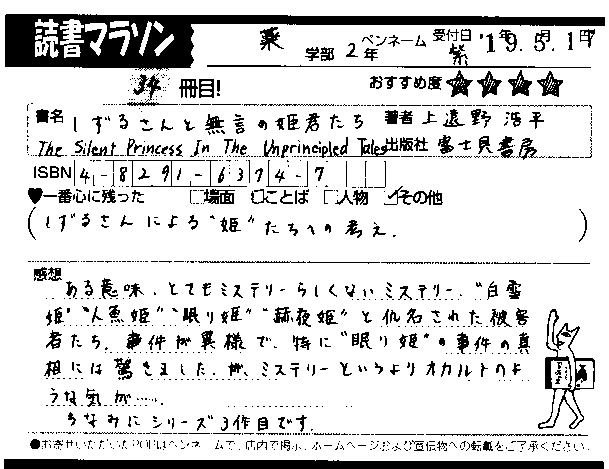 読書マラソン
薬 学部 2年 ペンネーム 紫 受付日 '19.5.17
34 冊目! おすすめ度 ★★★★
書名 しずるさんと無言の姫君たち 著者 上遠野 浩平
The Silent Princess In The Unprincipled Tales 出版社 富士見書房
ISBN 4-8291-6374-7
♥一番心に残った □場面 □ことば □人物 ☑その他
(しずるさんによる"姫"たちへの考え.)
感想
ある意味、とてもミステリーらしくないミステリー。"白雪
姫""人魚姫""眠り姫""赫夜姫"と仮名された被害
者たち。事件が異様で、特に"眠り姫"の事件の真
相には驚きました。が、ミステリーというよりオカルトのよ
うな気が……。
ちなみにシリーズ3作目です。
●お寄せいただいたPOPはペンネームで、店内で掲示、ホームページおよび宣伝物への転載をご了承ください。